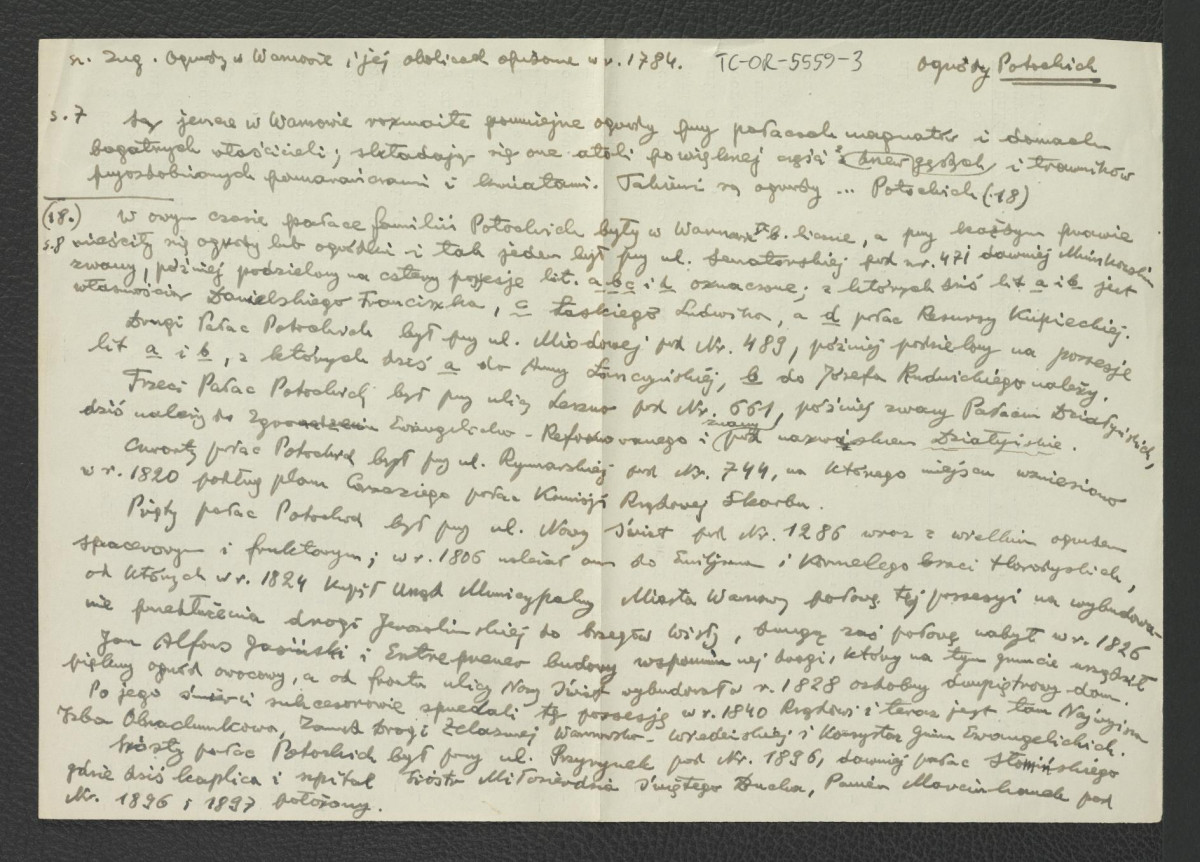 Sz. Zug. Ogrody w Warszawie i jej okolicach opisane w r. 1784. TC-OR-5559-3 Ogrody Potockich
s. 7 Są jeszcze w Warszawie rozmaite pomniejsze ogrody przy pałacach magnatów i domach
bogatych właścicieli; składają się one atoli po większej części z i trawników
przyozdobionych pomarańczami i kwiatami. Takiemi są ogrody ... Potockich (18)
(18.) W owym czasie pałace familii Potockich były w Warszawie b. liczne, a przy każdym prawie
s.8 mieściły się ogrody lub ogródki i tak jeden był przy ul. Senatorskiej pod nr. 471 dawniej
zwany, później podzielony na cztery posesje lit. a b c i d oznaczone; z których dziś lit a i b jest
własnością Danielskiego Franciszka, c Łaskiego Ludwika, a d pałac Resursy Kupieckiej.
Drugi Pałac Potockich był przy ul. Miodowej pod Nr. 489, później podzielony na posesje
lit a i b, z których dziś a do Anny b do Józefa Rudnickiego należy.
Trzeci Pałac Potockich był przy ulicy Leszno pod Nr. 661, później zwany Pałacem Działyńskich,
dziś należy do Ewangelicko-Reformowanego i znany pod nazwiskiem Działyńskie.
Czwarty pałac Potockich był przy ul. Rymarskiej pod Nr. 744, na którego miejscu wzniesiono
w r. 1820 podług planu Corazziego pałac Komisji Rządowej Skarbu.
Piąty pałac Potockich był przy ul. Nowy Świat pod Nr. 1286 wraz z wielkim ogrodem
spacerowym i fruktowym; w r. 1806 należał on do Emiljana i Kornelego braci Horodyskich,
od których w r. 1824 kupił Urząd Municypalny Miasta Warszawy połowę tej possesyi na wybudowa-
nie przedłużenia drogi Jerozolimskiej do brzegów Wisły, drugą zaś połowę nabył w r. 1826
Jan Alfons Jasiński i Entreprener budowy wspomnianej drogi, który na tym gruncie urządził
piękny ogród owocowy, a od frontu ulicy Nowy Świat wybudował w r. 1828 ozdobny dwupiętrowy dom.
Po jego śmierci sukcesorowie sprzedali tę possesję w r. 1840 Rządowi i teraz jest tam Najwyższa
Izba Obrachunkowa, Zarząd Drogi Żelaznej Warszawsko-Wiedeńskiej i Konsystorz Gmin Ewangelickich.
Szósty pałac Potockich był przy ul. Przyrynek pod Nr. 1896, dawniej pałac Słomińskiego
gdzie dziś kaplica i szpital Sióstr Miłosierdzia Świętego Ducha, Pannien Marcinkanek pod
Nr. 1896 i 1897 położony.